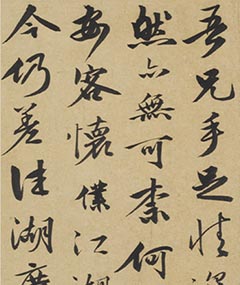 吾兄手足情深
然亦無可柰何
安客懷僕江湖
今仍差往湖廣